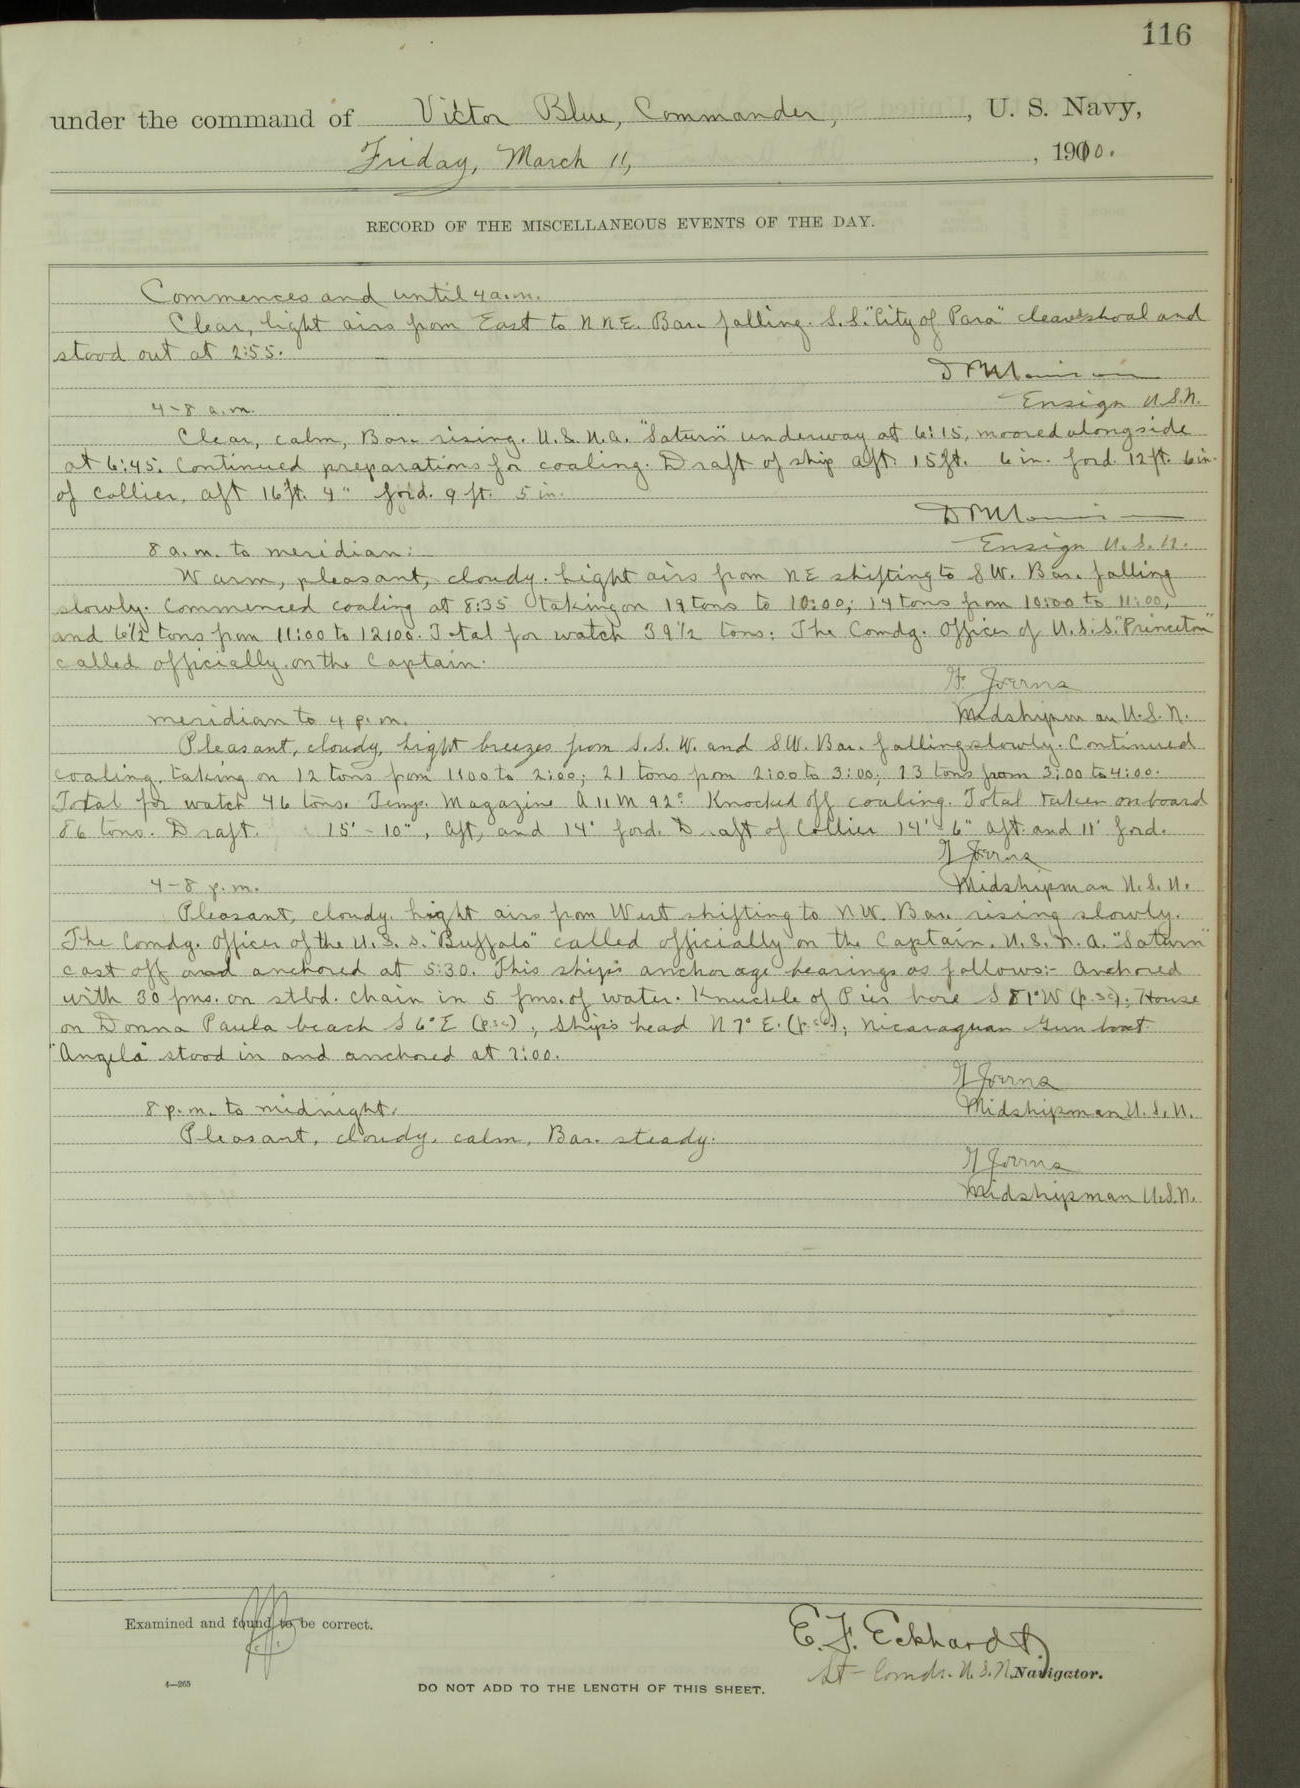 116
under the command of Victor Blue, Commander, , U. S. Navy,
Friday, March 11, , 1910.
RECORD OF THE MISCELLANEOUS EVENTS OF THE DAY.
Commences and until 4 a.m.
Clear, light airs from East to NNE. Bar. falling. S.S. "City of Para" cleared shoal and
stood out at 2:55.
Ensign U.S.N.
4-8 a.m.
Clear, calm, Bar. rising. U.S.N.A. "Saturn" underway at 6:15, moored alongside
at 6:45. Continued preparations for coaling. Draft of ship aft. 15 ft. 6 in. ford. 12 ft. 6 in.
of Collier, aft 16 ft. 4" ford. 9 ft. 5 in.
Ensign U.S.N.
8 a.m. to meridian:
Warm, pleasant, cloudy. Light airs from NE shifting to SW. Bar. falling
slowly. Commenced coaling at 8:35 taking on 19 tons to 10:00; 14 tons from 10:00 to 11:00,
and 6 1/2 tons from 11:00 to 12:00. Total for watch 39 1/2 tons. The Comdg. Officer of U.S.S. "Princeton"
called officially on the Captain.
Joerns
Midshipman U.S.N.
meridian to 4 p.m.
Pleasant, cloudy, light breezes from S.S.W. and SW. Bar. falling slowly. Continued
coaling, taking on 12 tons from 1:00 to 2:00; 21 tons from 2:00 to 3:00; 13 tons from 3:00 to 4:00.
Total for watch 46 tons. Temp. Magazine A 11 M 92° Knocked off coaling. Total taken onboard
86 tons. Draft. 15' - 10", aft, and 14' ford. Draft of Collier 14' - 6" aft. and 11' ford.
Joerns
Midshipman U.S.N.
4-8 p.m.
Pleasant, cloudy. Light airs from West shifting to NW. Bar. rising slowly.
The Comdg. Officer of the U.S.S. "Buffalo" called officially on the Captain. U.S.N.A. "Saturn"
cast off and anchored at 5:30. This ship's anchorage bearings as follows:- Anchored
with 30 fms. on stbd. chain in 5 fms. of water. Knuckle of Pier bore S 81° W (p.s.c); House
on Donna Paula beach S 6° E (p.s.c), Ship's head N 7° E. (p.s.c); Nicaraguan Gun boat
"Angela" stood in and anchored at 7:00.
Joerns
Midshipman U.S.N.
8 p.m. to midnight.
Pleasant, cloudy, calm, Bar. steady.
Joerns
Midshipman U.S.N.
Examined and found to be correct.
E. F. Eckhardt
Lt-Comdr. U.S.N. Navigator.
4—265
DO NOT ADD TO THE LENGTH OF THIS SHEET.